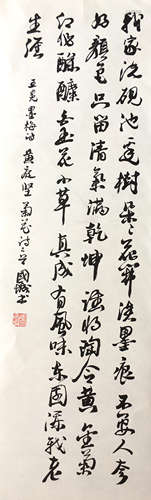 我家洗硯池邊樹朵朵花開淡墨痕不要人夸
好顏色只留清氣滿乾坤誰將陶令黃金菊
幻作酴醾白玉花小草真成有風味東園添我老
生涯
王冕墨梅詩黃庭堅菊花詩二首國書